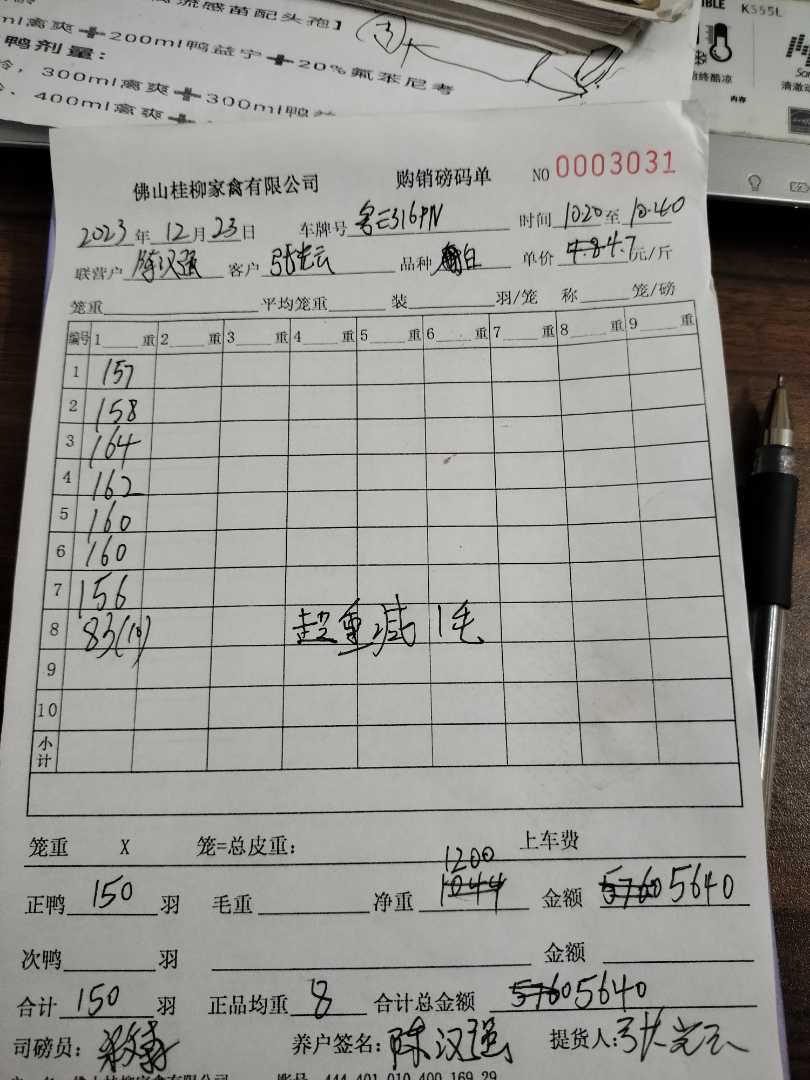 流感苗配头孢】
ml禽爽+200ml鸭益宁+20%氟苯尼考
鸭剂量:
300ml禽爽+300ml鸭益
400ml禽爽+
K555L
始终酷凉
清澈动
内存
佛山桂柳家禽有限公司 购销磅码单 NO 0003031
2023年12月23日 车牌号 316PN 时间 10:20至10:40
联营户 陈汉强 客户 张光云 品种 白 单价 4.8 4.7元/斤
笼重 平均笼重 装 羽/笼 称 笼/磅
编号 1 重 2 重 3 重 4 重 5 重 6 重 7 重 8 重 9 重
1 157
2 158
3 164
4 162
5 160
6 160
7 156
8 83(10) 超重减1毛
9
10
小计
笼重 X 笼=总皮重: 上车费
1200
正鸭 150 羽 毛重 净重 1044 金额 5760 5640
次鸭 羽 金额
合计 150 羽 正品均重 8 合计总金额 5760 5640
司磅员: 养户签名: 陈汉强 提货人: 张光云
佛山桂柳家禽有限公司 账号 444 401 010 400 169 29